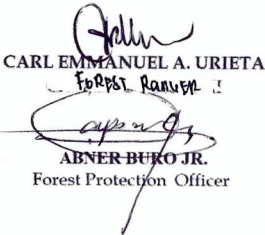 CARL EMMANUEL A. URIETA
FOREST RANGER I
ABNER BURO JR.
Forest Protection Officer